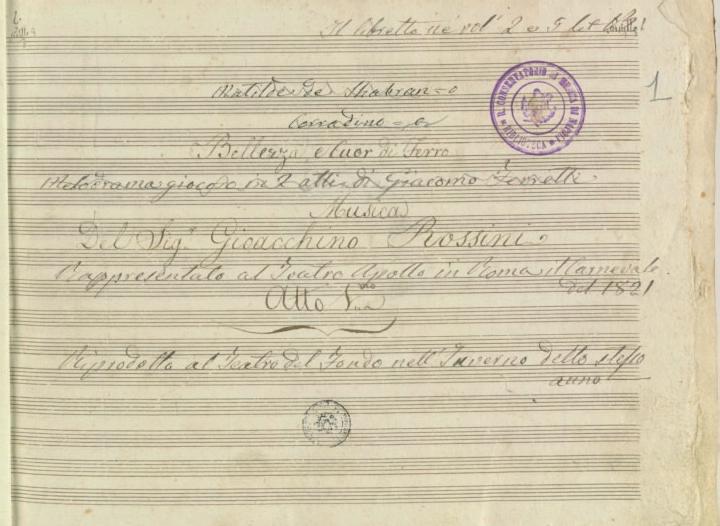 Il libretto nè vol' 2 e 5 let
Matilde de Shabran = o
Corradino = o
Bellezza, e Cuor di Ferro
Melodrama giocoso in 2 atti di Giacomo Ferretti
Musica
Del Sig.r Gioacchino Rossini
Rappresentato al Teatro Apollo in Roma il Carnevale
del 1821
Atto P.mo
Riprodotta al Teatro del Fondo nell'Inverno dello stesso
anno
1
R. CONSERVATORIO DI MUSICA DI NAPOLI
BIBLIOTECA